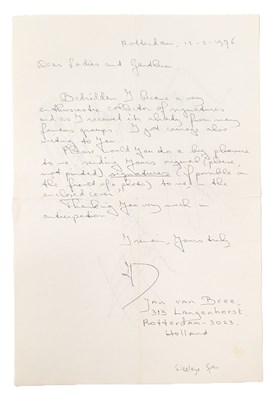 Rotterdam, 12-2-1996
Dear Ladies and Gentlemen
I became a very
enthusiastic collector of signatures
and so I received it already from many
famous groups. I got courage also
writing to you.
Please would you do a big pleasure
to me, sending yours original (please,
not printed) signatures (if possible on
the front of a photo) to me in the
enclosed cover.
Thanking you very much in
anticipation,
I remain, Yours truly
Jan van Bree
313 Langenhorst
Rotterdam-3023.
Holland